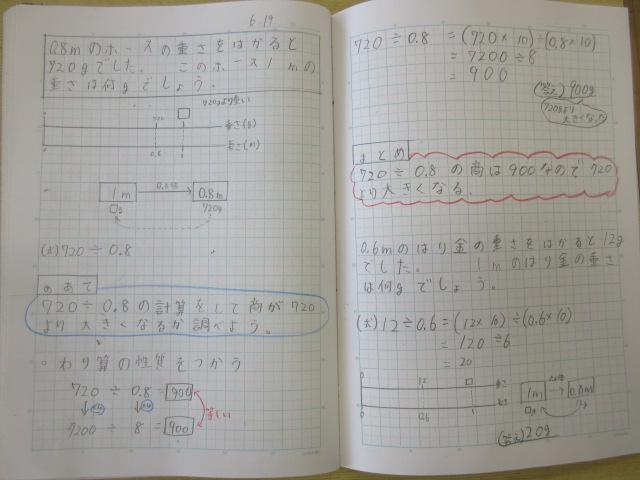 6.19
0.8mのホースの重さをはかると
720gでした。 このホース1mの
重さは何gでしょう。
720gより重い
720 □
0 重さ(g)
長さ(m)
0.8 1
0.8倍
1m 0.8m
□g 720g
(式)720÷0.8
めあて
720÷0.8の計算をして商が720
より大きくなるか調べよう。
○わり算の性質をつかう
720÷0.8=900
×10 ×10 等しい
7200÷8=900
720÷0.8=(720×10)÷(0.8×10)
=7200÷8
=900
(答え)900g
720gより
大きくなった
まとめ
720÷0.8の商は900なので720
より大きくなる.
0.6mのはり金の重さをはかると12g
でした。 1mのはり金の重さ
は何gでしょう。
(式)12÷0.6=(12×10)÷(0.6×10)
=120÷6
=20
0 12 □ 重さ
長さ
1m 0.6m
□g 12g
(答え)20g